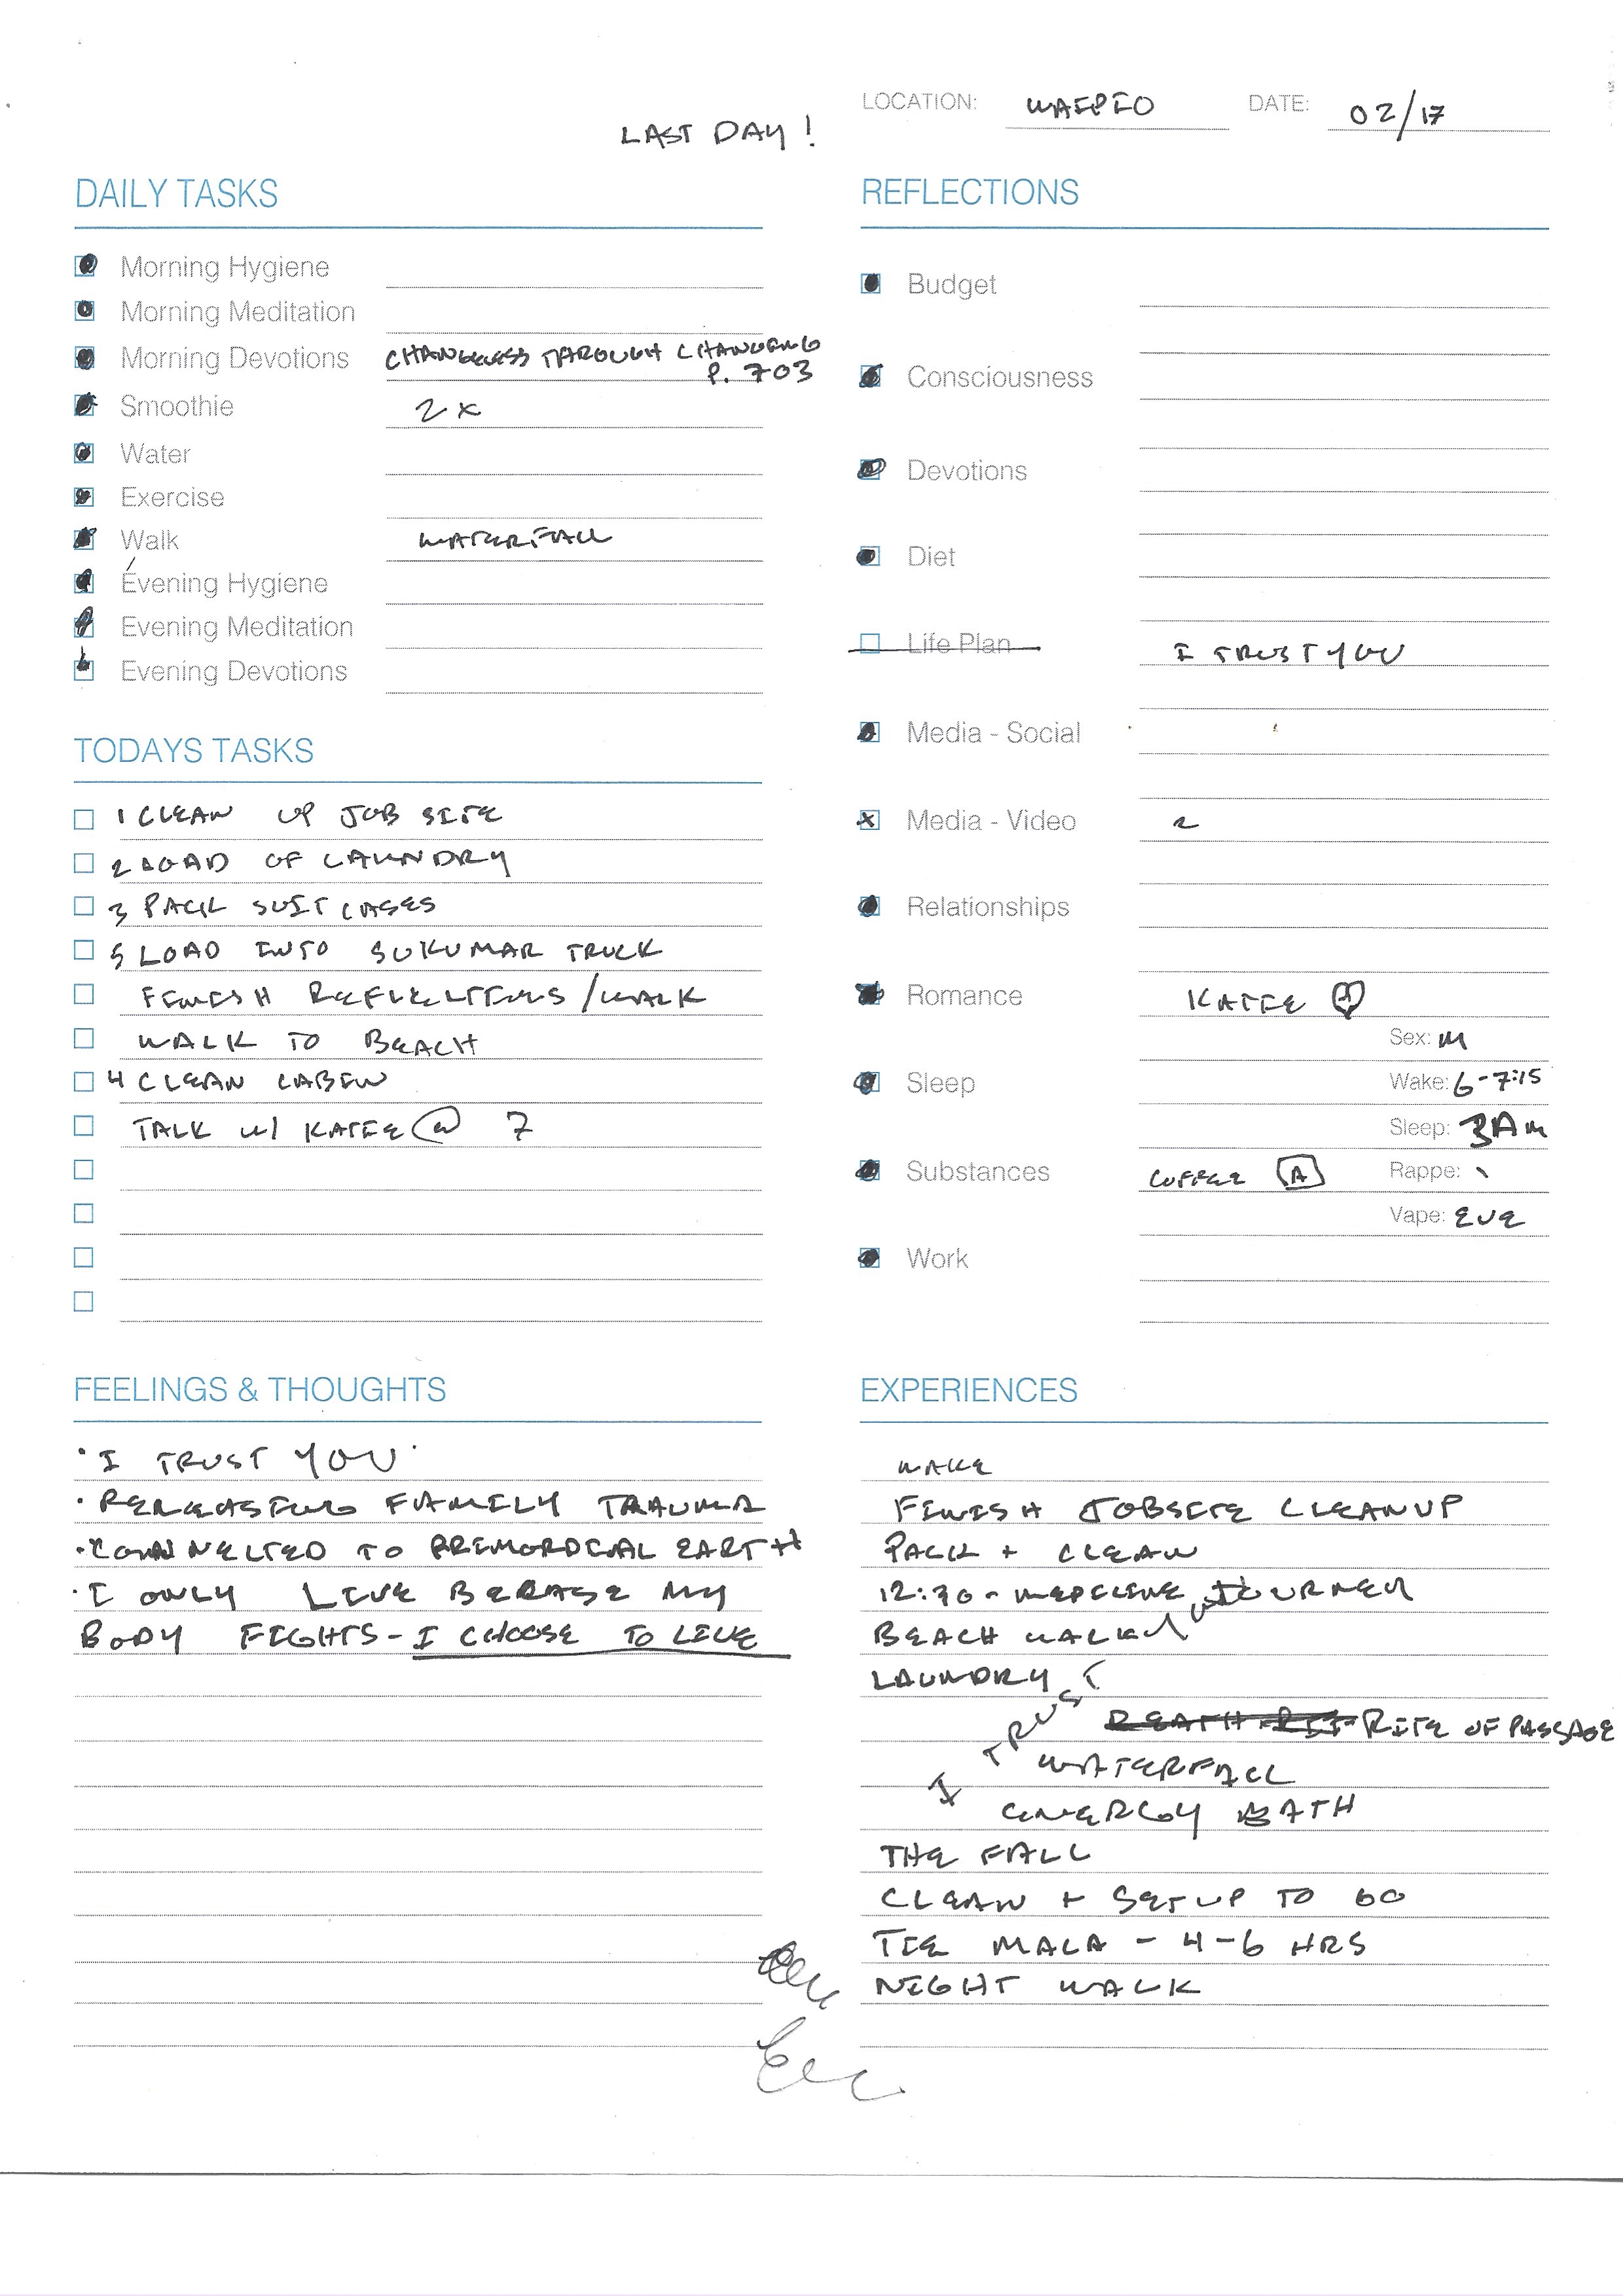 LOCATION: WAIPIO DATE: 02/17
LAST DAY!
DAILY TASKS
Morning Hygiene
Morning Meditation
Morning Devotions CHANGELESS THROUGH CHANGING
P. 703
Smoothie 2x
Water
Exercise
Walk WATERFALL
Evening Hygiene
Evening Meditation
Evening Devotions
TODAYS TASKS
1 CLEAN UP JOB SITE
2 LOAD OF LAUNDRY
3 PACK SUITCASES
5 LOAD INTO SUKUMAR TRUCK
FINISH REFLECTIONS/WALK
WALK TO BEACH
4 CLEAN CABIN
TALK W/ KATIE @ 7
REFLECTIONS
Budget
Consciousness
Devotions
Diet
Life Plan I TRUST YOU
Media - Social
Media - Video 2
Relationships
Romance KATIE
Sex: M
Sleep Wake: 6-7:15
Sleep: 3AM
Substances COFFEE A Rappe: \
Vape: EVE
Work
FEELINGS & THOUGHTS
"I TRUST YOU"
• RELEASING FAMILY TRAUMA
• CONNECTED TO PRIMORDIAL EARTH
• I ONLY LIVE BECAUSE MY
BODY FIGHTS - I CHOOSE TO LIVE
EXPERIENCES
WAKE
FINISH JOBSITE CLEANUP
PACK + CLEAN
12:30 - MEDICINE JOURNEY
BEACH WALK
LAUNDRY
I TRUST YOU
RITE OF PASSAGE
WATERFALL
ENERGY BATH
THE FALL
CLEAN + SETUP TO GO
TIE MALA - 4-6 HRS
NIGHT WALK